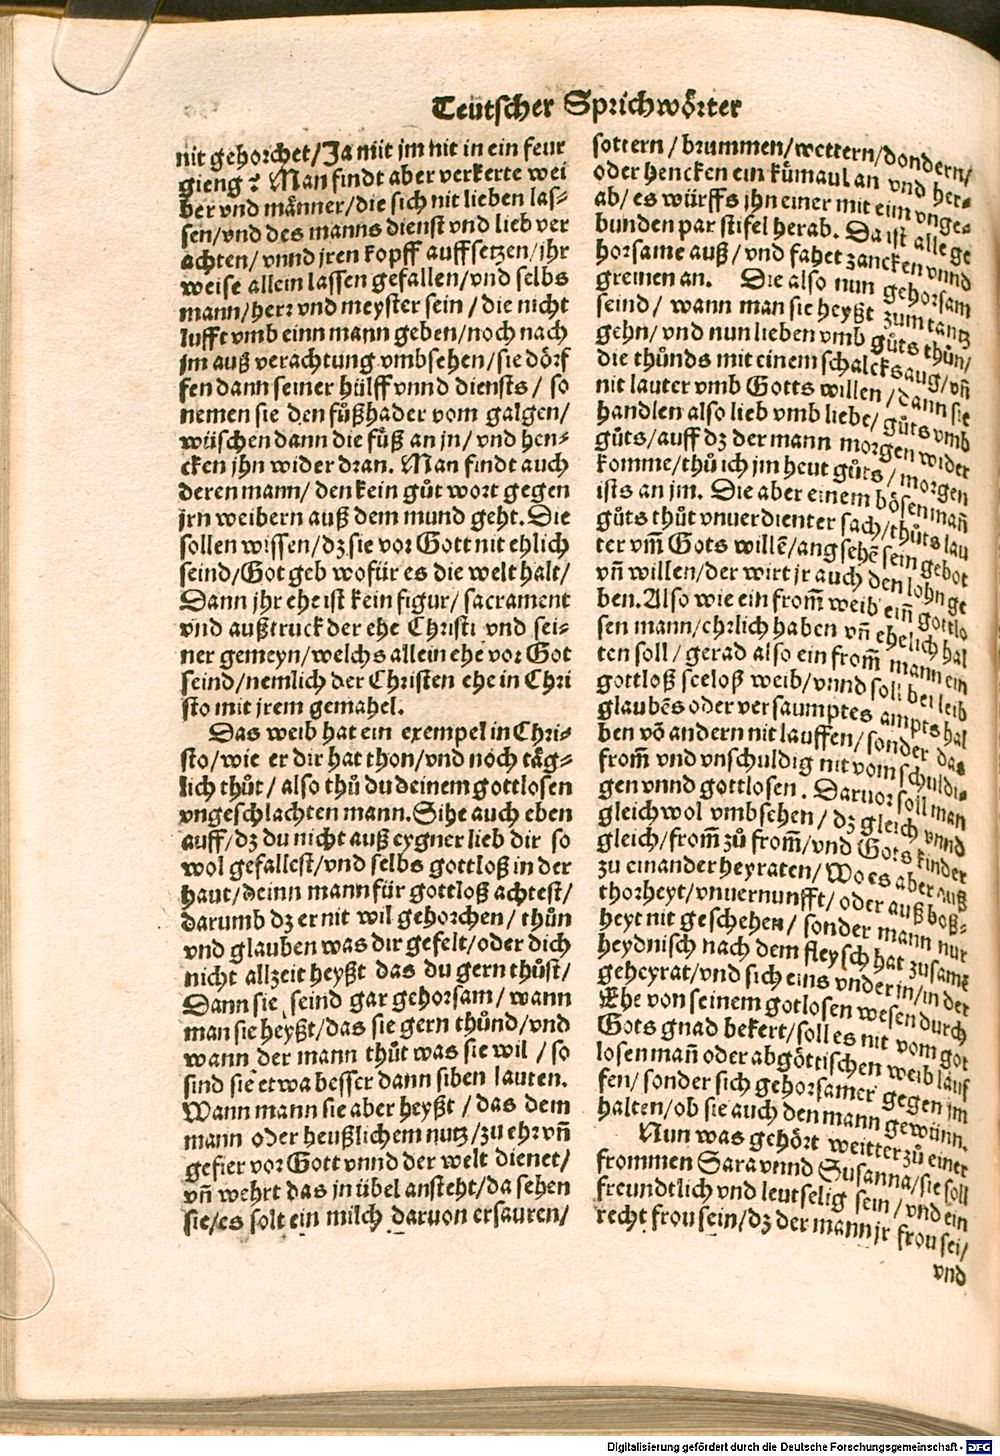 Teütscher Sprichwörter
nit gehorchet/Ja mit jm nit in ein feur
gieng? Man findt aber verkerte wei
ber vnd männer/die sich nit lieben las⸗
sen/vnd des manns dienst vnd lieb ver
achten/vnnd jren kopff auffsetzen/jhr
weise allein lassen gefallen/vnd selbs
mann/herr vnd meyster sein/die nicht
lufft vmb einn mann geben/noch nach
jm auß verachtung vmbsehen/sie dörf
fen dann seiner hülff vnnd diensts/ so
nemen sie den fůßhader vom galgen/
wüschen dann die fůß an jn/ vnd hen⸗
cken jhn wider dran. Man findt auch
deren mann/ den kein gůt wort gegen
jrn weibern auß dem mund geht. Die
sollen wissen/dz sie vor Gott nit ehlich
seind/Got geb wofür es die welt halt/
Dann jhr ehe ist kein figur/ sacrament
vnd außtruck der ehe Christi vnd sei⸗
ner gemeyn/welchs allein ehe vor Got
seind/nemlich der Christen ehe in Chri
sto mit jrem gemahel.
Das weib hat ein exempel in Chri⸗
sto/wie er dir hat thon/vnd noch täg⸗
lich thůt/ also thů du deinem gottlosen
vngeschlachten mann. Sihe auch eben
auff/dz du nicht auß eygner lieb dir so
wol gefallest/vnd selbs gottloß in der
haut/deinn mann für gottloß achtest/
darumb dz er nit wil gehorchen/ thůn
vnd glauben was dir gefelt/oder dich
nicht allzeit heyßt das du gern thůst/
Dann sie seind gar gehorsam/ wann
man sie heyßt/das sie gern thůnd/vnd
wann der mann thůt was sie wil / so
sind sie etwa besser dann siben lauten.
Wann mann sie aber heyßt / das dem
mann oder heußlichem nutz/zu ehr vn̄
gefier vor Gott vnnd der welt dienet/
vn̄ wehrt das jn übel ansteht/da sehen
sie/es solt ein milch daruon ersauren/
sottern / brummen/wettern/dondern/
oder hencken ein kümaul an vnd her⸗
ab/ es würffs jhn einer mit eim vnge⸗
bunden par stifel herab. Da ist alle ge
horsame auß/ vnd fahet zancken vnnd
greinen an. Die also nun gehorsam
seind/ wann man sie heyßt zum tantz
gehn/ vnd nun lieben vmb gůts thůn/
die thůnds mit einem schalcks aug/vn̄
nit lauter vmb Gotts willen / dann sie
handlen also lieb vmb liebe/ gůts vmb
gůts/auff dz der mann morgen wider
komme/thů ich jm heut gůts / morgen
ists an jm. Die aber einem bösen man̄
gůts thůt vnuerdienter sach/thůts lau
ter vm̄ Gots willē/angsehē sein gebot
vn̄ willen/der wirt jr auch den lohn ge
ben. Also wie ein from̄ weib ein̄ gottlo
sen mann/ehrlich haben vn̄ ehelich hal
ten soll / gerad also ein from̄ mann ein
gottloß seeloß weib/vnnd soll bei leib
glaubēs oder versaumptes ampts hal
ben vō andern nit lauffen/ sonder das
from̄ vnd vnschuldig nit vom schuldi⸗
gen vnnd gottlosen. Daruor soll man
gleich wol vmbsehen / dz gleich vnnd
gleich/from̄ zů from̄/vnd Gots kinder
zu einander heyraten/ Wo es aber auß
thorheyt/vnuernunfft/ oder auß boß⸗
heyt nit geschehen/ sonder mann nur
heydnisch nach dem fleysch hat zusamē
geheyrat/vnd sich eins vnder jn/in der
Ehe von seinem gotlosen wesen durch
Gots gnad bekert/soll es nit vom got
losen man̄ oder abgöttischen weib lauf
fen/ sonder sich gehorsamer gegen jm
halten/ob sie auch den mann gewünn.
Nun was gehört weitter zů einer
frommen Sara vnnd Susanna/sie soll
freundtlich vnd leutselig sein / vnd ein
recht frou sein/dz der mann jr frou sei/
vnd
Digitalisierung gefördert durch die Deutsche Forschungsgemeinschaft - DFG